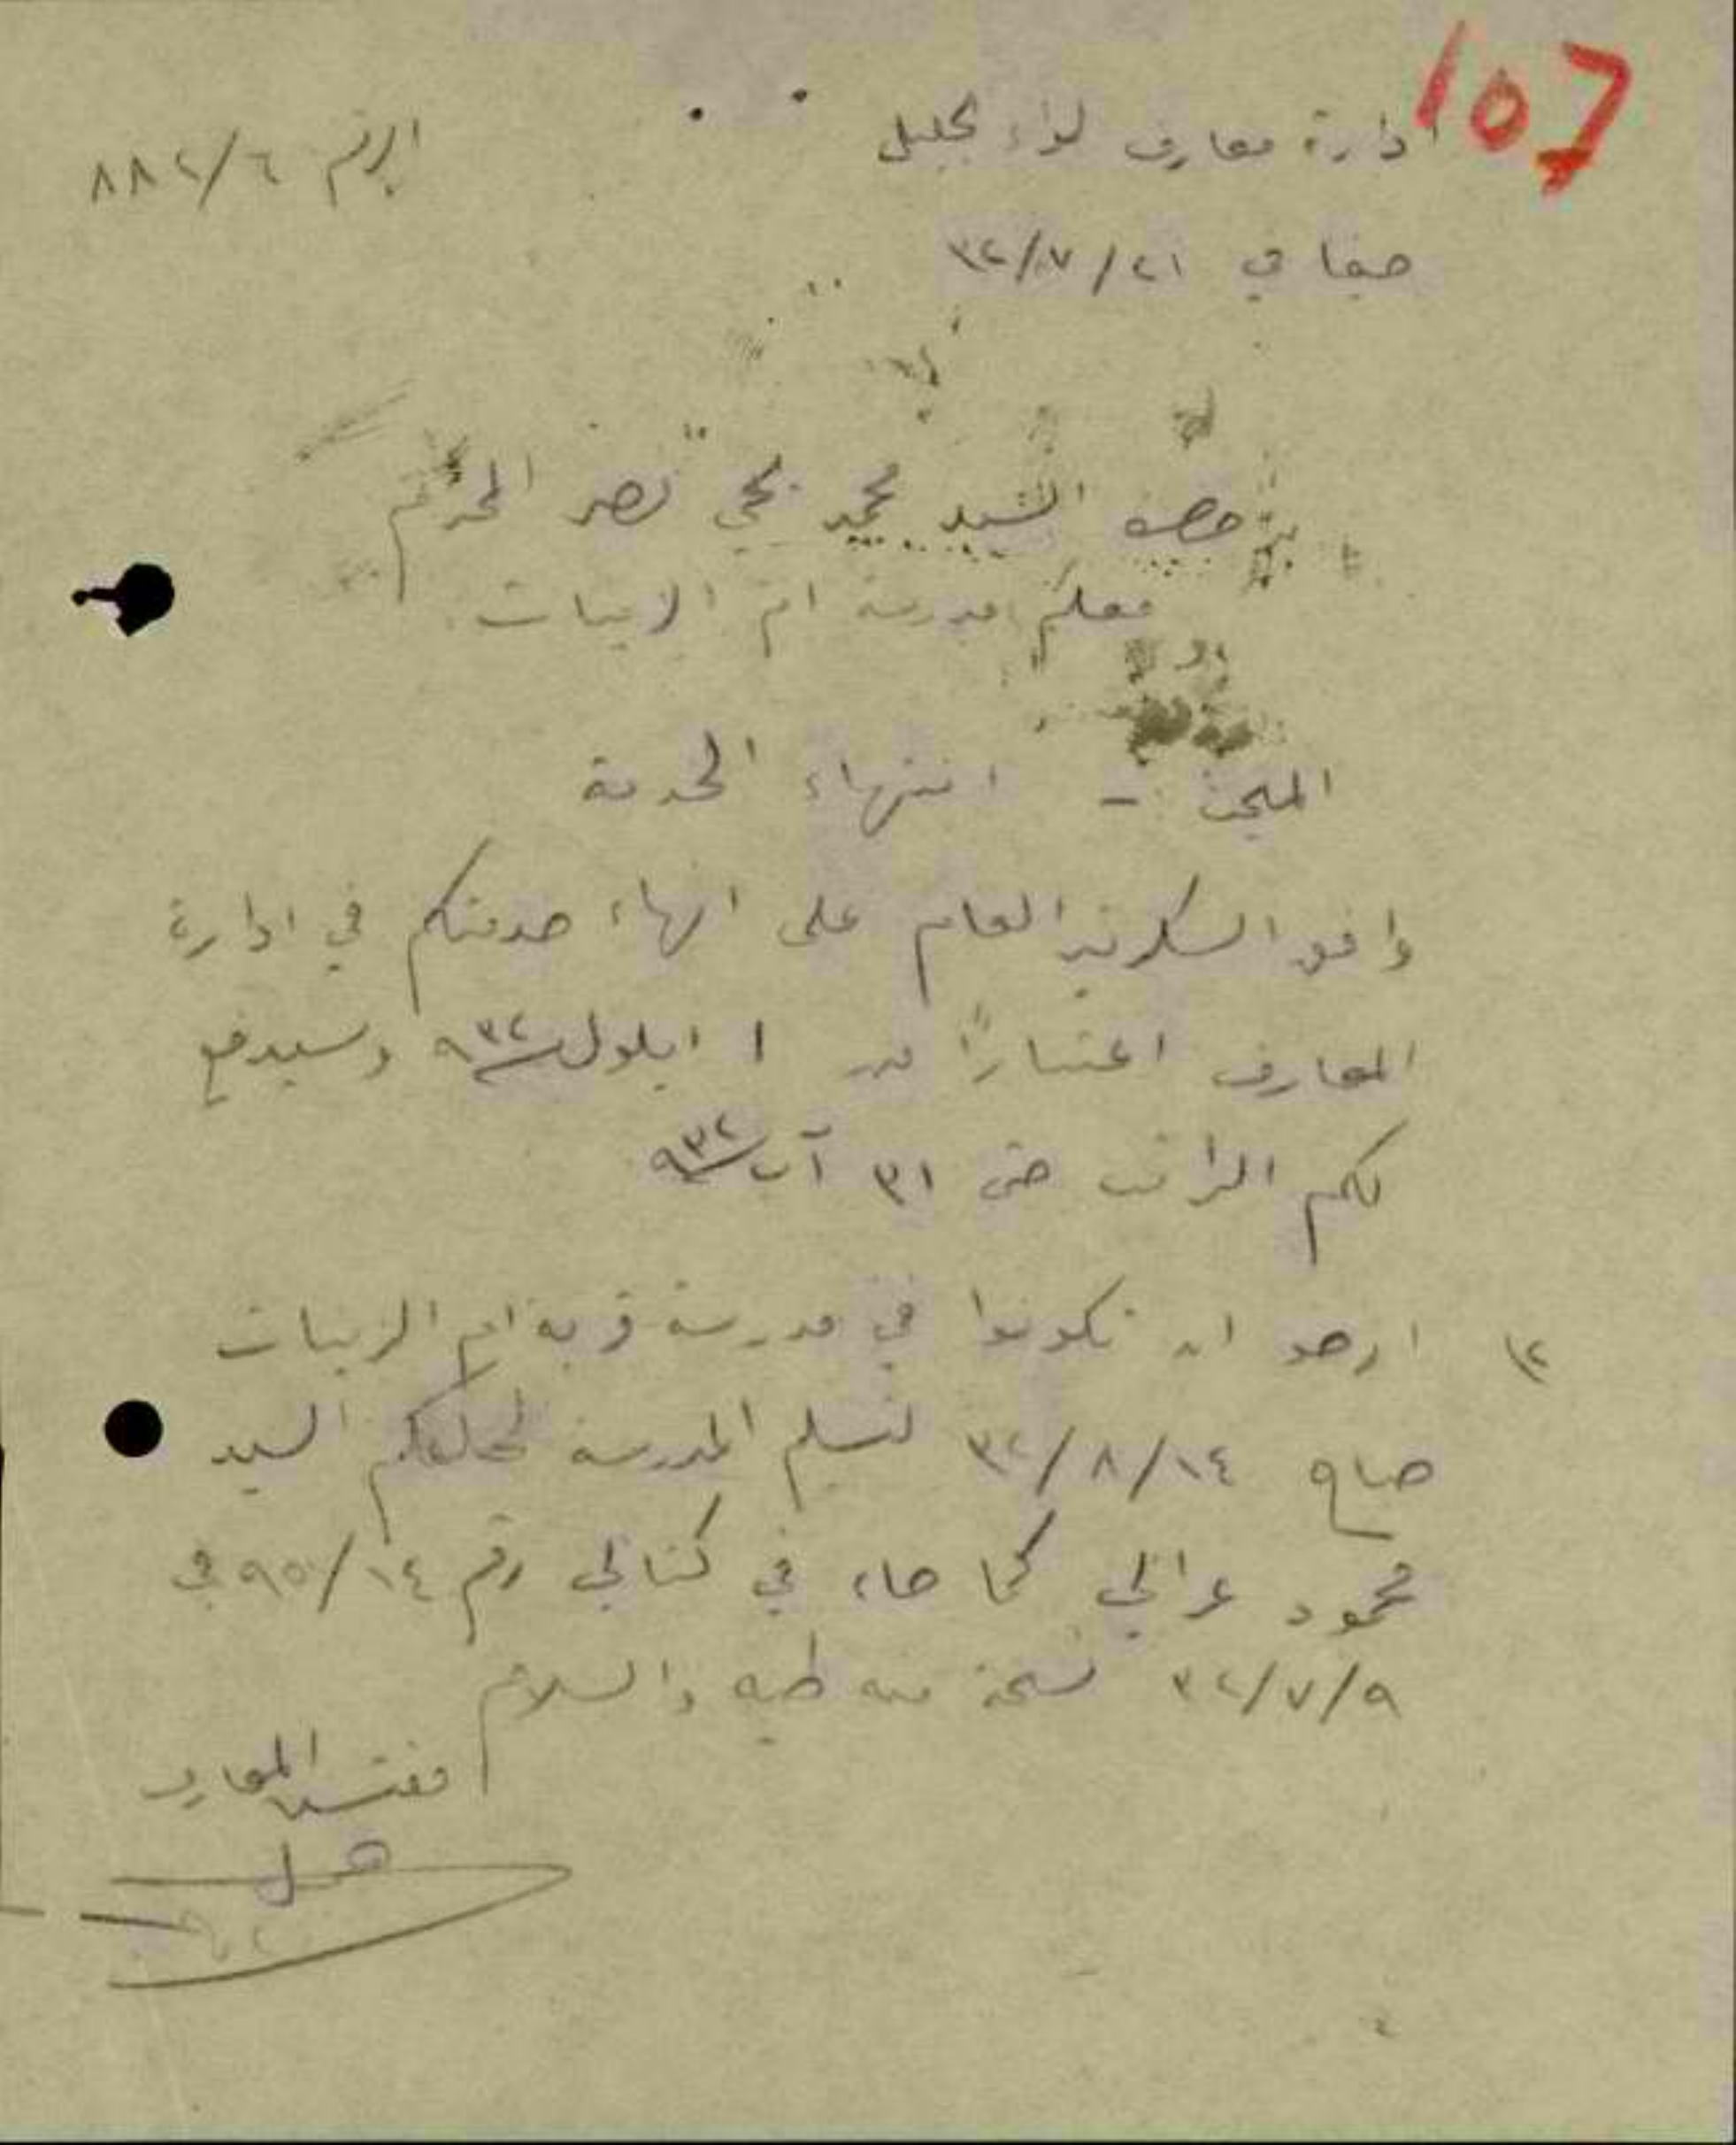 107
ادارة معارف لواء الجليل
الرقم ٨٨٢/٦
حيفا في ٢١/٧/٣٢
حضرة السيد محمد يحيى نصر المحترم
معلم مدرسة ام الزينات
المبحث - انتهاء الخدمة
وافق السكرتير العام على انهاء خدمتكم في ادارة
المعارف اعتباراً من ١ ايلول ٩٣٢ وسيدفع
لكم الراتب حتى ٣١ آب ٩٣٢
٢) ارجو ان تكونوا في مدرسة قرية ام الزينات
صباح ١٤/٨/٣٢ لتسليم المدرسة لخلفكم السيد
محمود عرابي كما جاء في كتابي رقم ٩٥/١٤ في
٩/٧/٣٢ نسخة منه طيه والسلام
مفتش المعارف